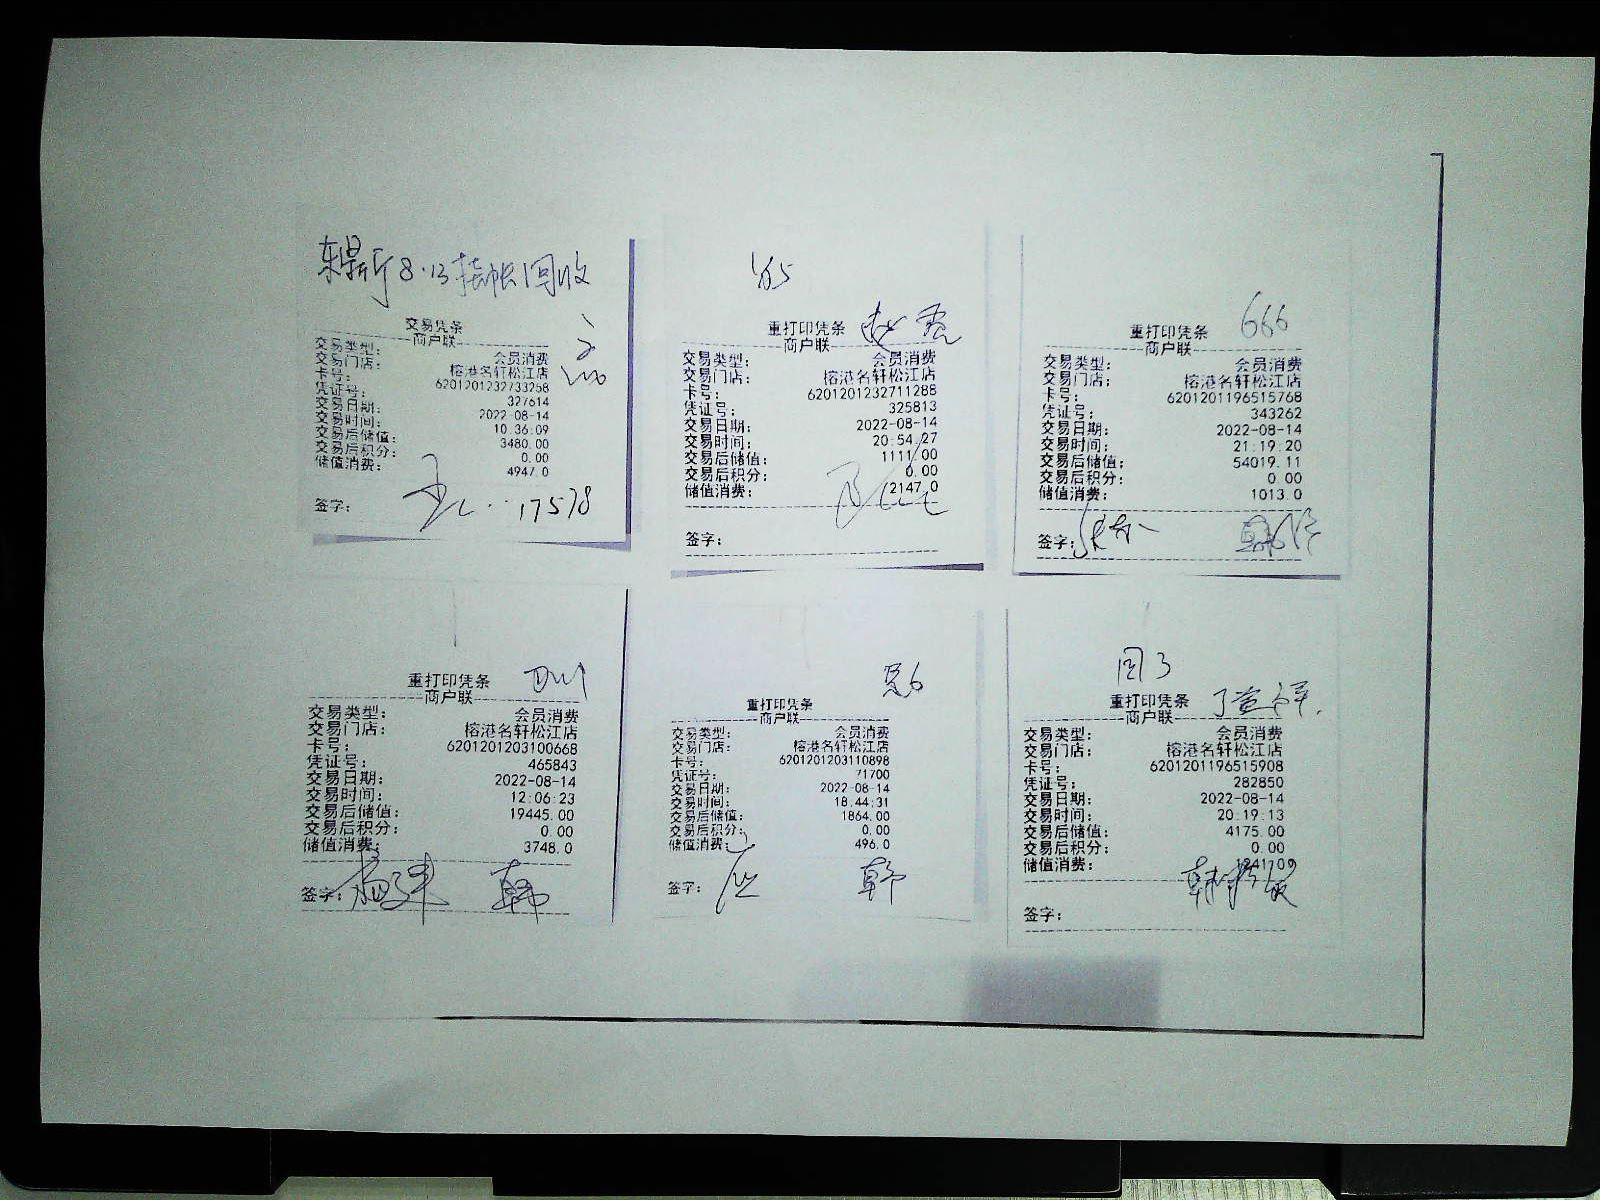 东 8.13挂帐回收
交易凭条
商户联
交易类型: 会员消费
交易门店: 榕港名轩松江店
卡号: 6201201232733268
凭证号: 327614
交易日期: 2022-08-14
交易时间: 10:36:09
交易后储值: 3480.00
交易后积分: 0.00
储值消费: 4947.0
签字: 17578
重打印凭条
商户联
交易类型: 会员消费
交易门店: 榕港名轩松江店
卡号: 6201201232711288
凭证号: 325813
交易日期: 2022-08-14
交易时间: 20:54:27
交易后储值: 1111.00
交易后积分: 0.00
储值消费: 2147.0
签字:
666
重打印凭条
商户联
交易类型: 会员消费
交易门店: 榕港名轩松江店
卡号: 6201201196515768
凭证号: 343262
交易日期: 2022-08-14
交易时间: 21:19:20
交易后储值: 54019.11
交易后积分: 0.00
储值消费: 1013.0
签字:
重打印凭条
商户联
交易类型: 会员消费
交易门店: 榕港名轩松江店
卡号: 6201201203100668
凭证号: 465843
交易日期: 2022-08-14
交易时间: 12:06:23
交易后储值: 19445.00
交易后积分: 0.00
储值消费: 3748.0
签字: 韩
重打印凭条
商户联
交易类型: 会员消费
交易门店: 榕港名轩松江店
卡号: 6201201203110898
凭证号: 71700
交易日期: 2022-08-14
交易时间: 18:44:31
交易后储值: 1864.00
交易后积分: 0.00
储值消费: 496.0
签字: 应 韩
重打印凭条
商户联
交易类型: 会员消费
交易门店: 榕港名轩松江店
卡号: 6201201196515908
凭证号: 282850
交易日期: 2022-08-14
交易时间: 20:19:13
交易后储值: 4175.00
交易后积分: 0.00
储值消费:
签字: